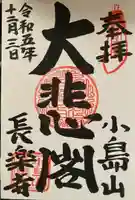 奉拝
小島山
大悲閣
長楽寺
令和五年
十二月三日